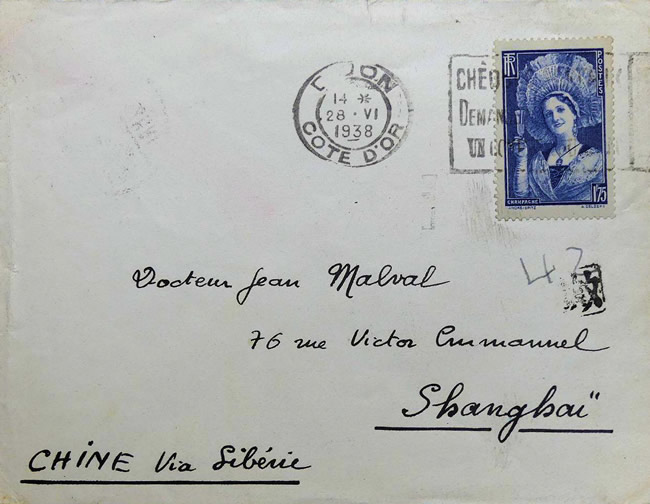 DIJON
14 *
28 • VI
1938
COTE D'OR
RF
POSTES
CHAMPAGNE
1F75
Docteur Jean Malval
42
76 rue Victor Emmanuel
Shanghaï
CHINE Via Sibérie